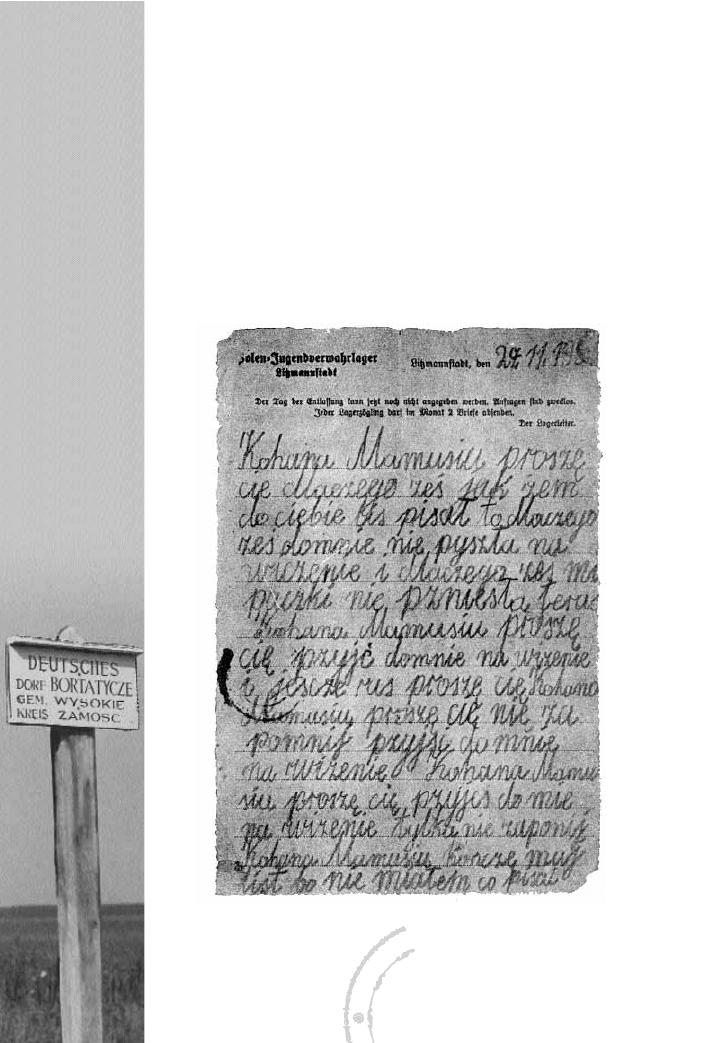 DEUTSCHES
DORF BORTATYCZE
GEM. WYSOKIE
KREIS ZAMOSC
Polen-Jugendverwahrlager
Litzmannstadt
Litzmannstadt, den 27. 11.
Der Tag der Entlassung kann jetzt noch nicht angegeben werden. Anfragen sind zwecklos.
Jeder Lagerzögling darf im Monat 2 Briefe absenden.
Der Lagerleiter.
Kohana Mamusiu proszę
cię dlaczego żeś jak żem
do ciebie lis pisał to dlaczego
żeś domnie nie pyszła na
wiczenie i dlaczego żeś mi
pączki nie pzniesła teraz
Kohana Mamusiu proszę
cię pzyjć domnie na wizenie
i jescze rus proszę cię Kohana
Mamusiu proszę cię nie za
pomnij pzyjść do mnie
na wizenie Kohana Mamu
siu proszę cię pzyjes do mie
na wizenie tylko nie zaponij
Kohana Mamusiu kończę muj
list bo nie miałem co pisać